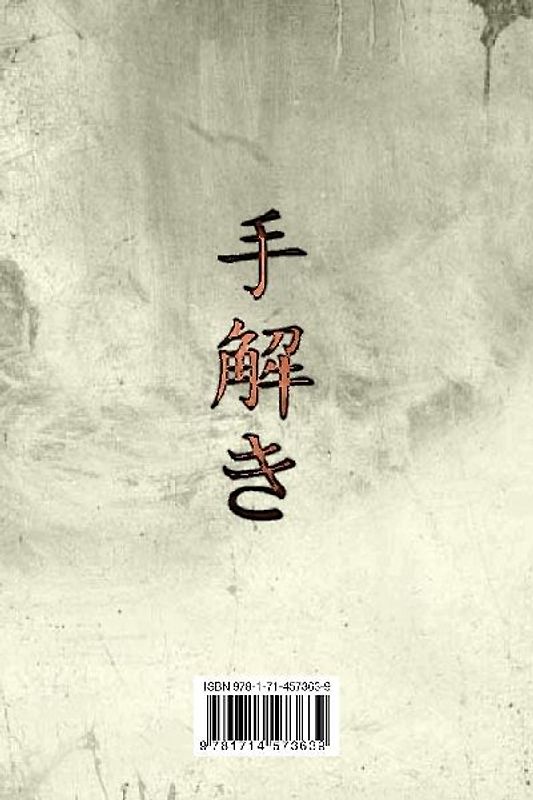 手解き
ISBN 978-1-71-457363-9
9 781714 573639